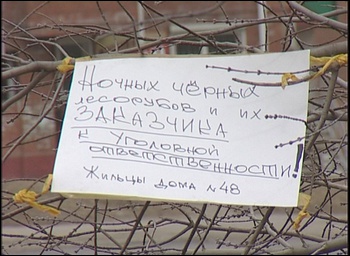 Ночных чёрных
лесорубов и их
ЗАКАЗЧИКА
к уголовной
ответственности!
Жильцы дома №48